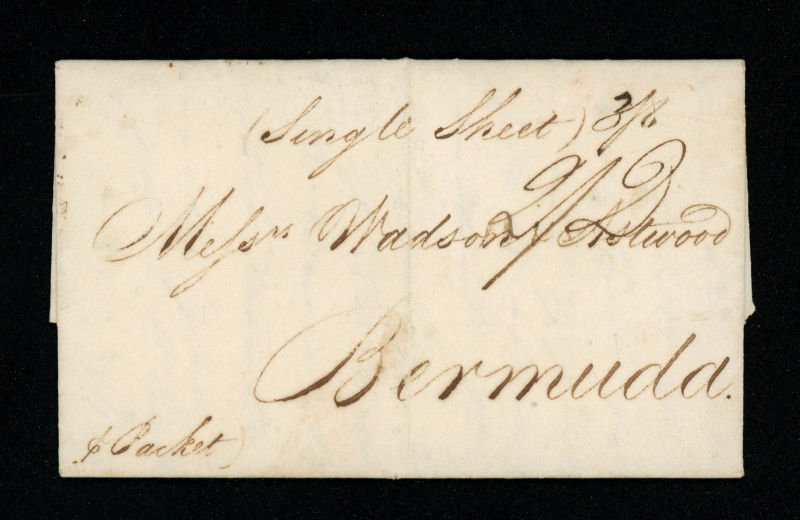 (Single Sheet) 3/8
2/2
Messrs Wadson & Astwood
Bermuda.
⅌ Packet)